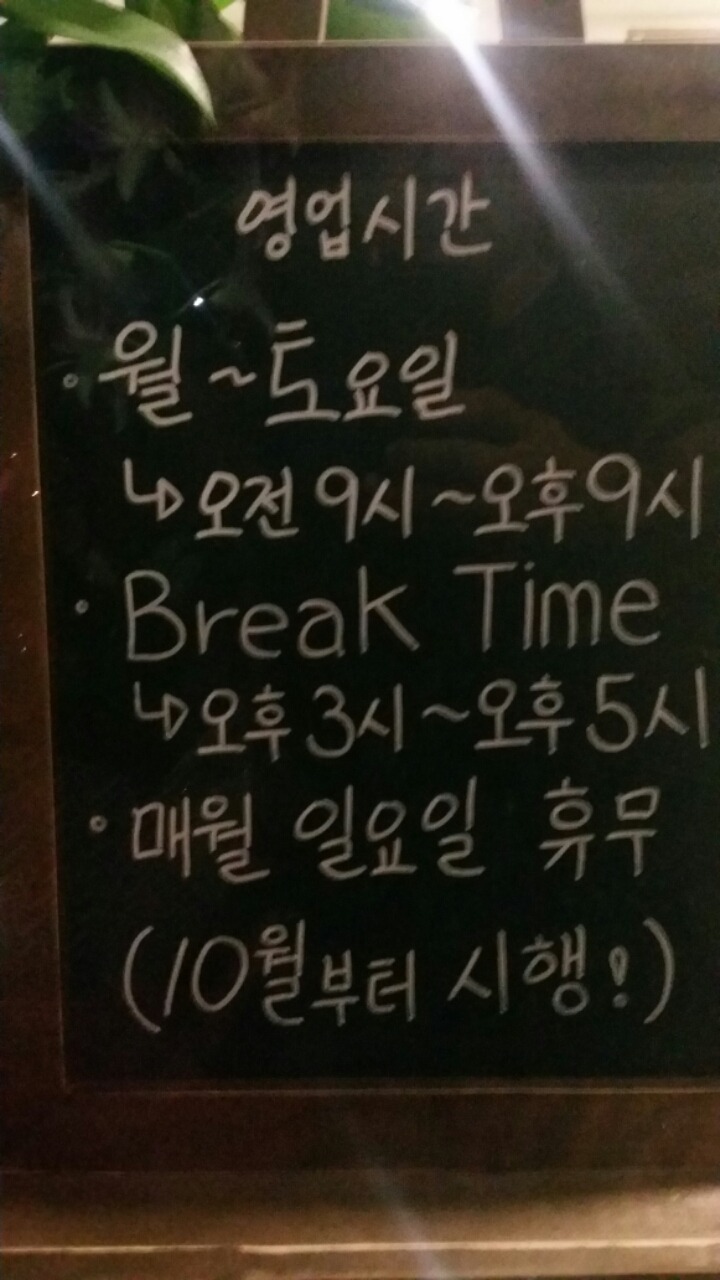 영업시간
◦ 월~토요일
↳ 오전 9시~오후 9시
◦ Break Time
↳ 오후 3시~오후 5시
◦ 매월 일요일 휴무
(10월부터 시행!)